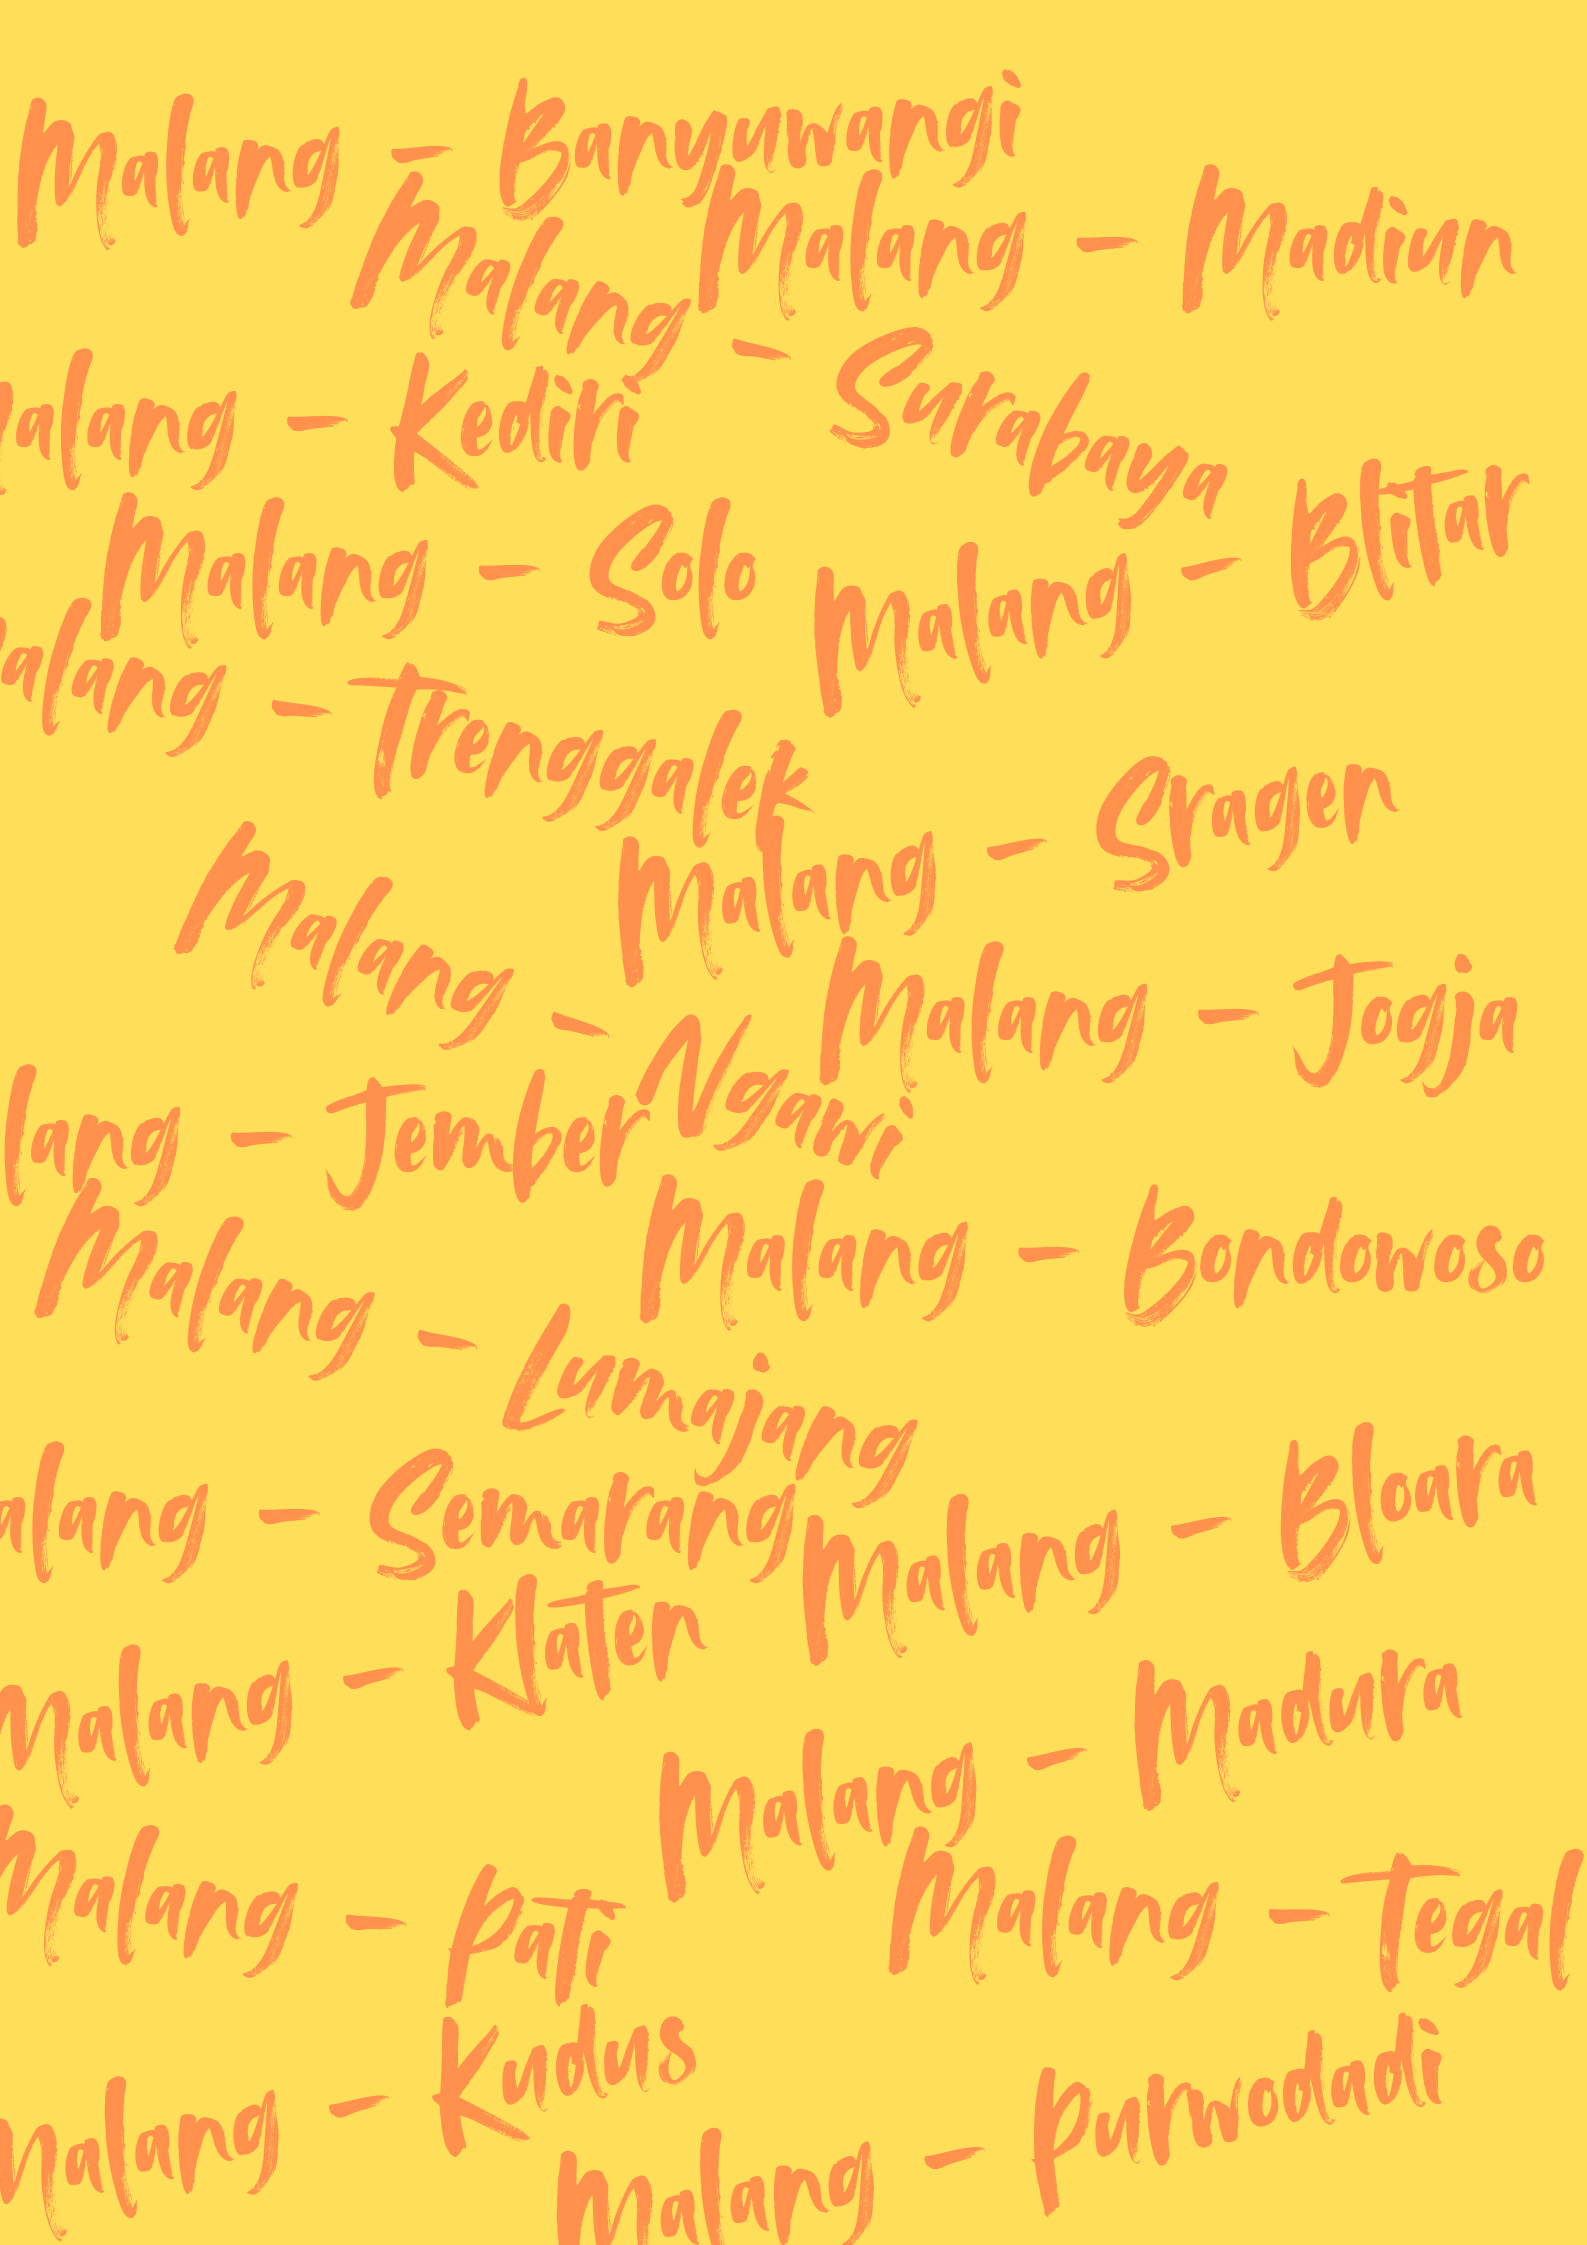 Malang - Banyuwangi
Malang - Madiun
Malang - Surabaya
alang - Kediri
Malang - Solo
Malang - Blitar
alang - Trenggalek
Malang - Sragen
Malang - Ngawi
Malang - Jogja
lang - Jember
Malang - Bondowoso
Malang - Lumajang
alang - Semarang
Malang - Bloara
Malang - Klaten
Malang - Madura
Malang - Pati
Malang - Tegal
Malang - Kudus
Malang - Purwodadi